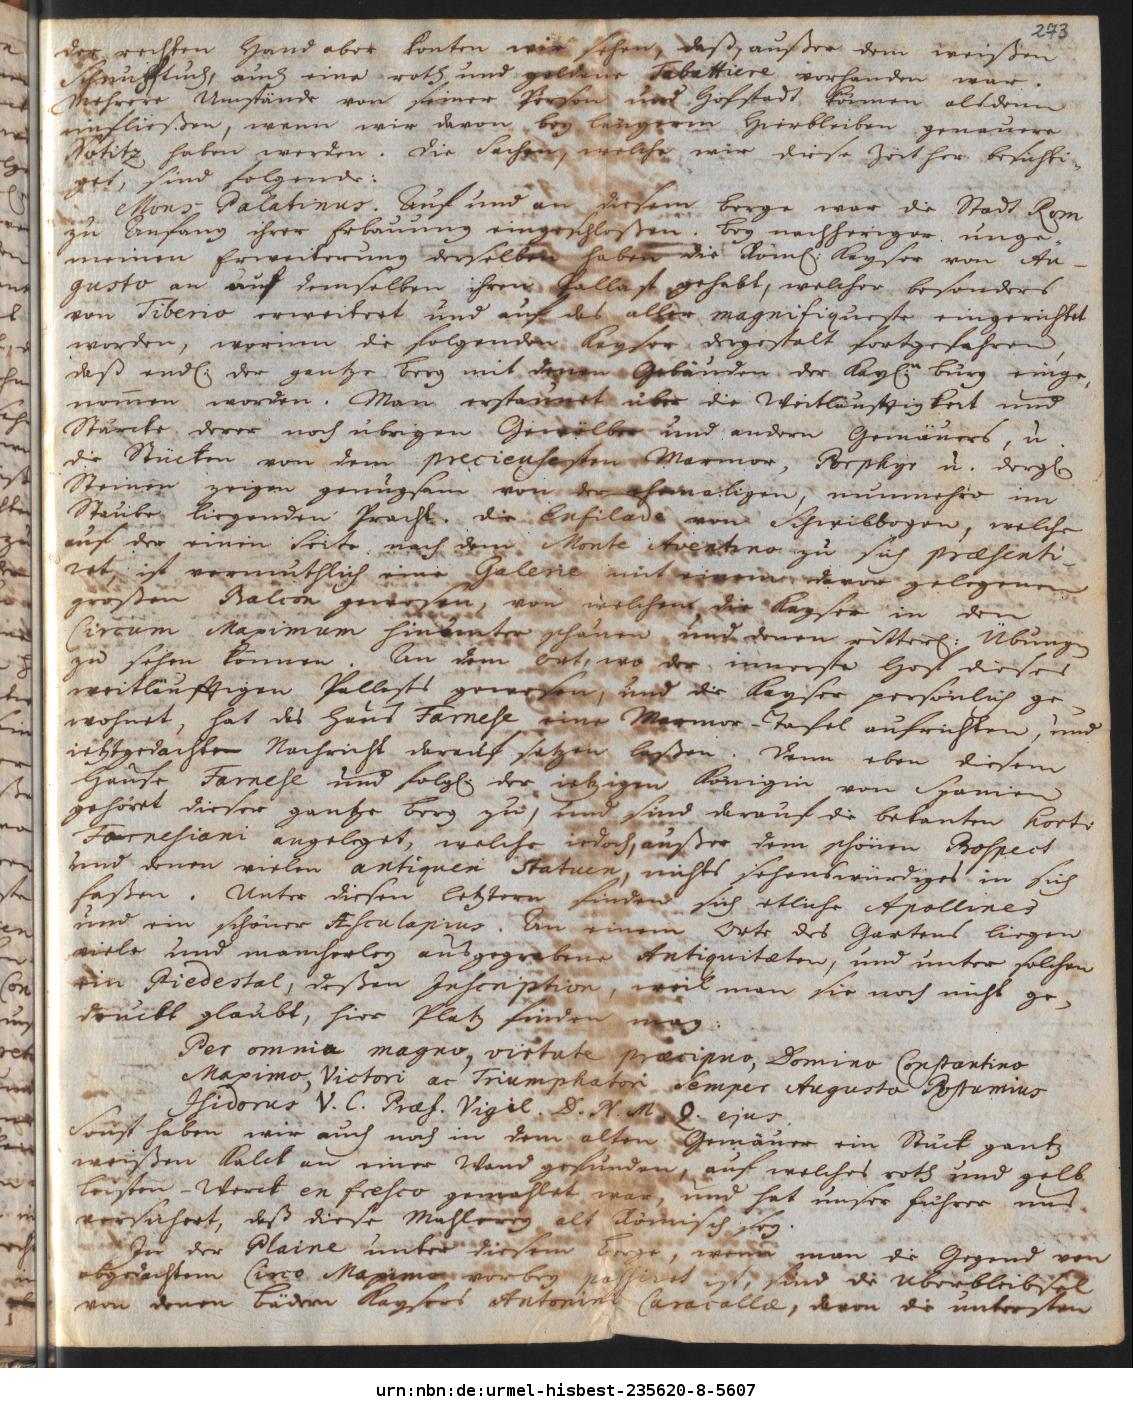 273
der rechten Hand aber konten wir sehen, daß, außer dem weißen
Schnupftuch, auch eine roth und goldene Tabattiere vorhanden war.
Mehrere Umstände von seiner Person und Hofstadt können alsdenn
einfließen, wenn wir davon bey längerm Hierbleiben genauere
Notitz haben werden. Die Sachen, welche wir diese Zeither besichti-
get, sind folgende:
Mons Palatinus. Auf und an diesem Berge war die Stadt Rom
zu Anfang ihrer Erbauung eingeschloßen. Bey nachheriger unge-
meinen Erweiterung derselben haben die Röm: Kayser von Au-
gusto an auf demselben ihren Pallast gehabt, welcher besonders
von Tiberio erweitert und auf das aller magnifiqueste eingerichtet
worden, worinn die folgenden Kayser dergestalt fortgefahren,
daß endl: der gantze Berg mit denen Gebäuden der Kayl:n Burg einge-
nommen worden. Man erstaunet über die Weitläufftigkeit und
Stärcke derer noch übrigen Gewölber und andern Gemäuers, u.
die Stücken von dem precieusesten Marmor, Porphyr u. dergl
Steinen zeigen genugsam von der ehemaligen, nunmehro im
Staube liegenden Pracht. Die Enfilade von Schwibbogen, welche
auf der einen Seite nach dem Monte Aventino zu sich præsenti-
ret, ist vermuthlich eine Galerie mit einem davor gelegenen
großen Balcon gewesen, von welchem die Kayser in den
Circum Maximum hinunter schauen und denen ritterl: Übungen
zu sehen können. An dem Ort, wo der innerste Hof dieses
weitläufftigen Pallasts gewesen, und die Kayser persönlich ge-
wohnet, hat das Haus Farnese eine Marmor-Tafel aufrichten, und
ietztgedachte Nachricht darauf setzen laßen. Denn eben diesem
Hause Farnese und folgl: der ietzigen Königin von Spanien
gehöret dieser gantze Berg zu, und sind darauf die bekanten Horti
Farnesiani angeleget, welche iedoch, außer dem schönen Prospect
und denen vielen antiquen Statuen, nichts sehenswürdiges in sich
faßen. Unter diesen letztern finden sich etliche Apollines
und ein schöner Æsculapius. An einem Orte des Gartens liegen
viele und mancherley ausgegrabene Antiquitæten, und unter solchen
ein Piedestal, deßen Inscription, weil man sie noch nicht ge-
druckt glaubt, hier Platz finden mag:
Per omnia magno, virtute præcipuo, Domino Constantino
Maximo, Victori ac Triumphatori Semper Augusto Postumius
Isidorus V. C. Præf. Vigil. D. N. M. Q. ejus.
Sonst haben wir auch noch in dem alten Gemäuer ein Stück gantz
weißen Kalck an einer Wand gefunden, auf welches roth und gelb
Leisten-Werck en fresco gemahlet war, und hat unser Führer uns
versichert, daß diese Mahlerey alt Römisch sey.
In der Plaine unter diesem Berge, wenn man die Gegend von
obgedachtem Circo Maximo vorbey passiret ist, sind die Überbleibsel
von denen Bädern Kaysers Antonini Caracallæ, davon die untersten
urn:nbn:de:urmel-hisbest-235620-8-5607